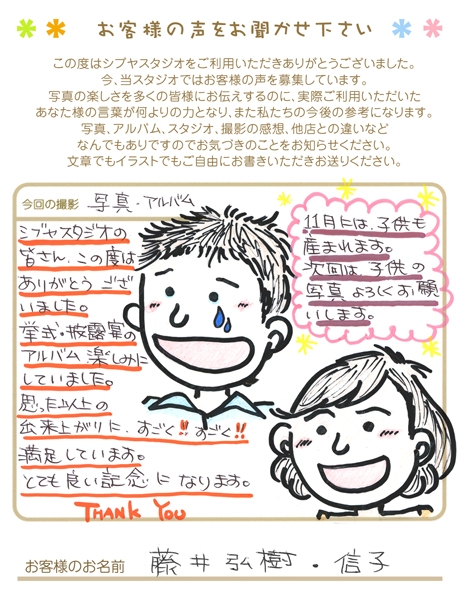 お客様の声をお聞かせ下さい
この度はシブヤスタジオをご利用いただきありがとうございました。
今、当スタジオではお客様の声を募集しています。
写真の楽しさを多くの皆様にお伝えするのに、実際ご利用いただいた
あなた様の言葉が何よりの力となり、また私たちの今後の参考になります。
写真、アルバム、スタジオ、撮影の感想、他店との違いなど
なんでもありですのでお気づきのことをお知らせください。
文章でもイラストでもご自由にお書きいただきお送りください。
今回の撮影 写真・アルバム
シブヤスタジオの
皆さん、この度は
ありがとう ござ
いました。
挙式・披露宴の
アルバム 楽しみに
していました。
思った以上の
出来上がりに、すごく!!すごく!!
満足しています。
とても良い記念になります。
THANK YOU
11月には、子供も
産まれます。
次回は、子供の
写真よろしくお願
いします。
お客様のお名前 藤井弘樹・信子